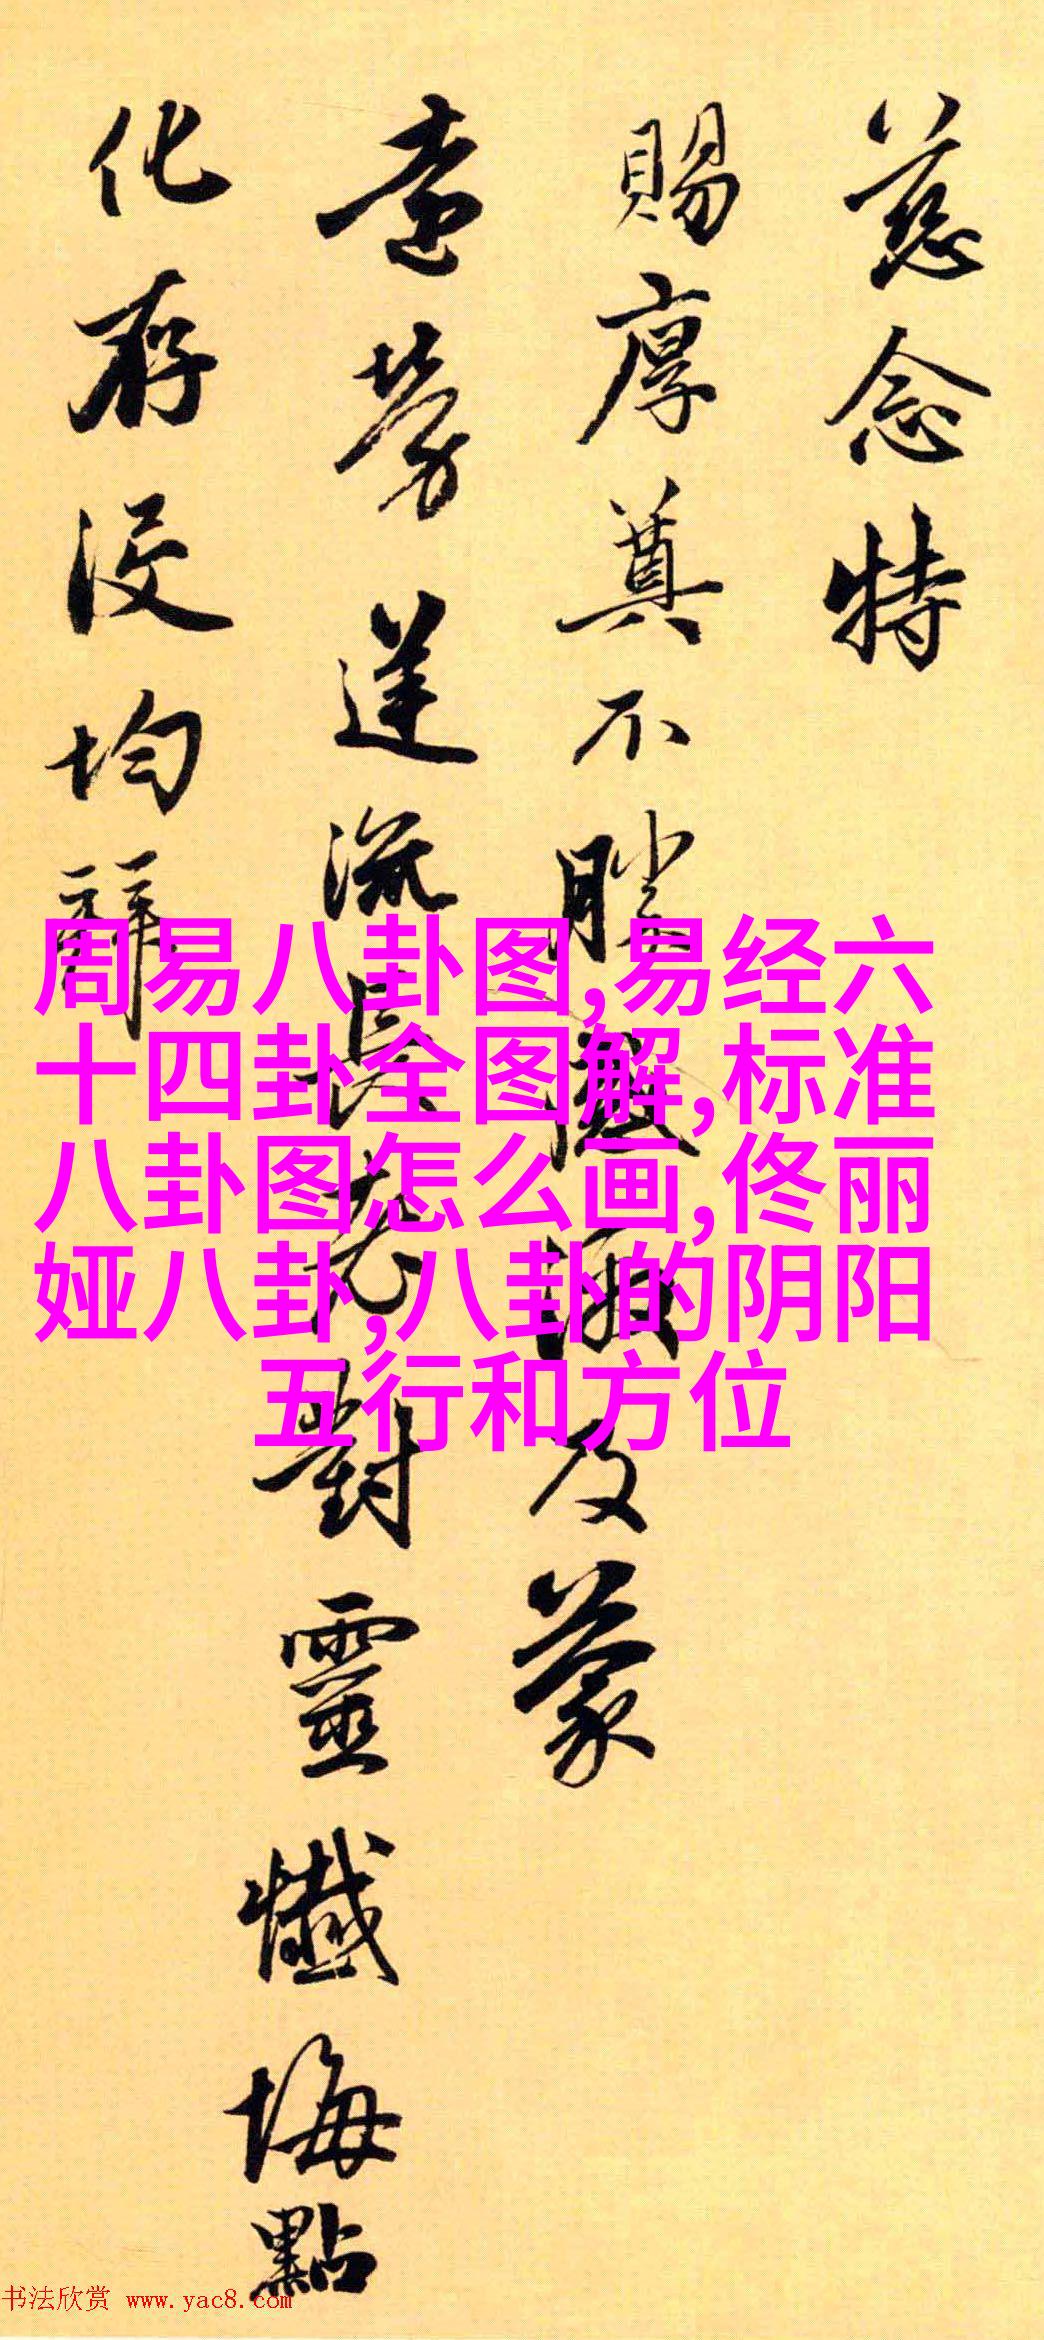 慈念特
賜厚奠不勝感激及蒙
遠勞送流長老對靈懺悔點
化存没均
周易八卦图,易经六
十四卦全图解,标准
八卦图怎么画,佟丽
娅八卦,八卦的阴阳
五行和方位
书法欣赏 www.yac8.com